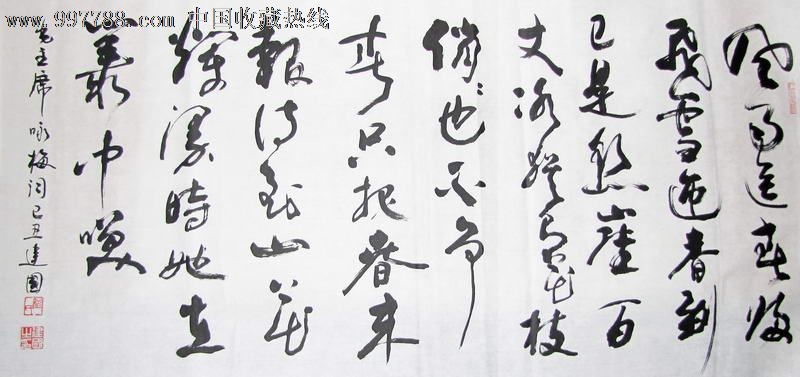 www.997788.com 中国收藏热线
风雨送春归
飛雪迎春到
已是悬崖百
丈冰犹有花枝
俏〻也不争
春只把春来
報待到山花
爛漫時她在
叢中笑
毛主席咏梅词己丑建國